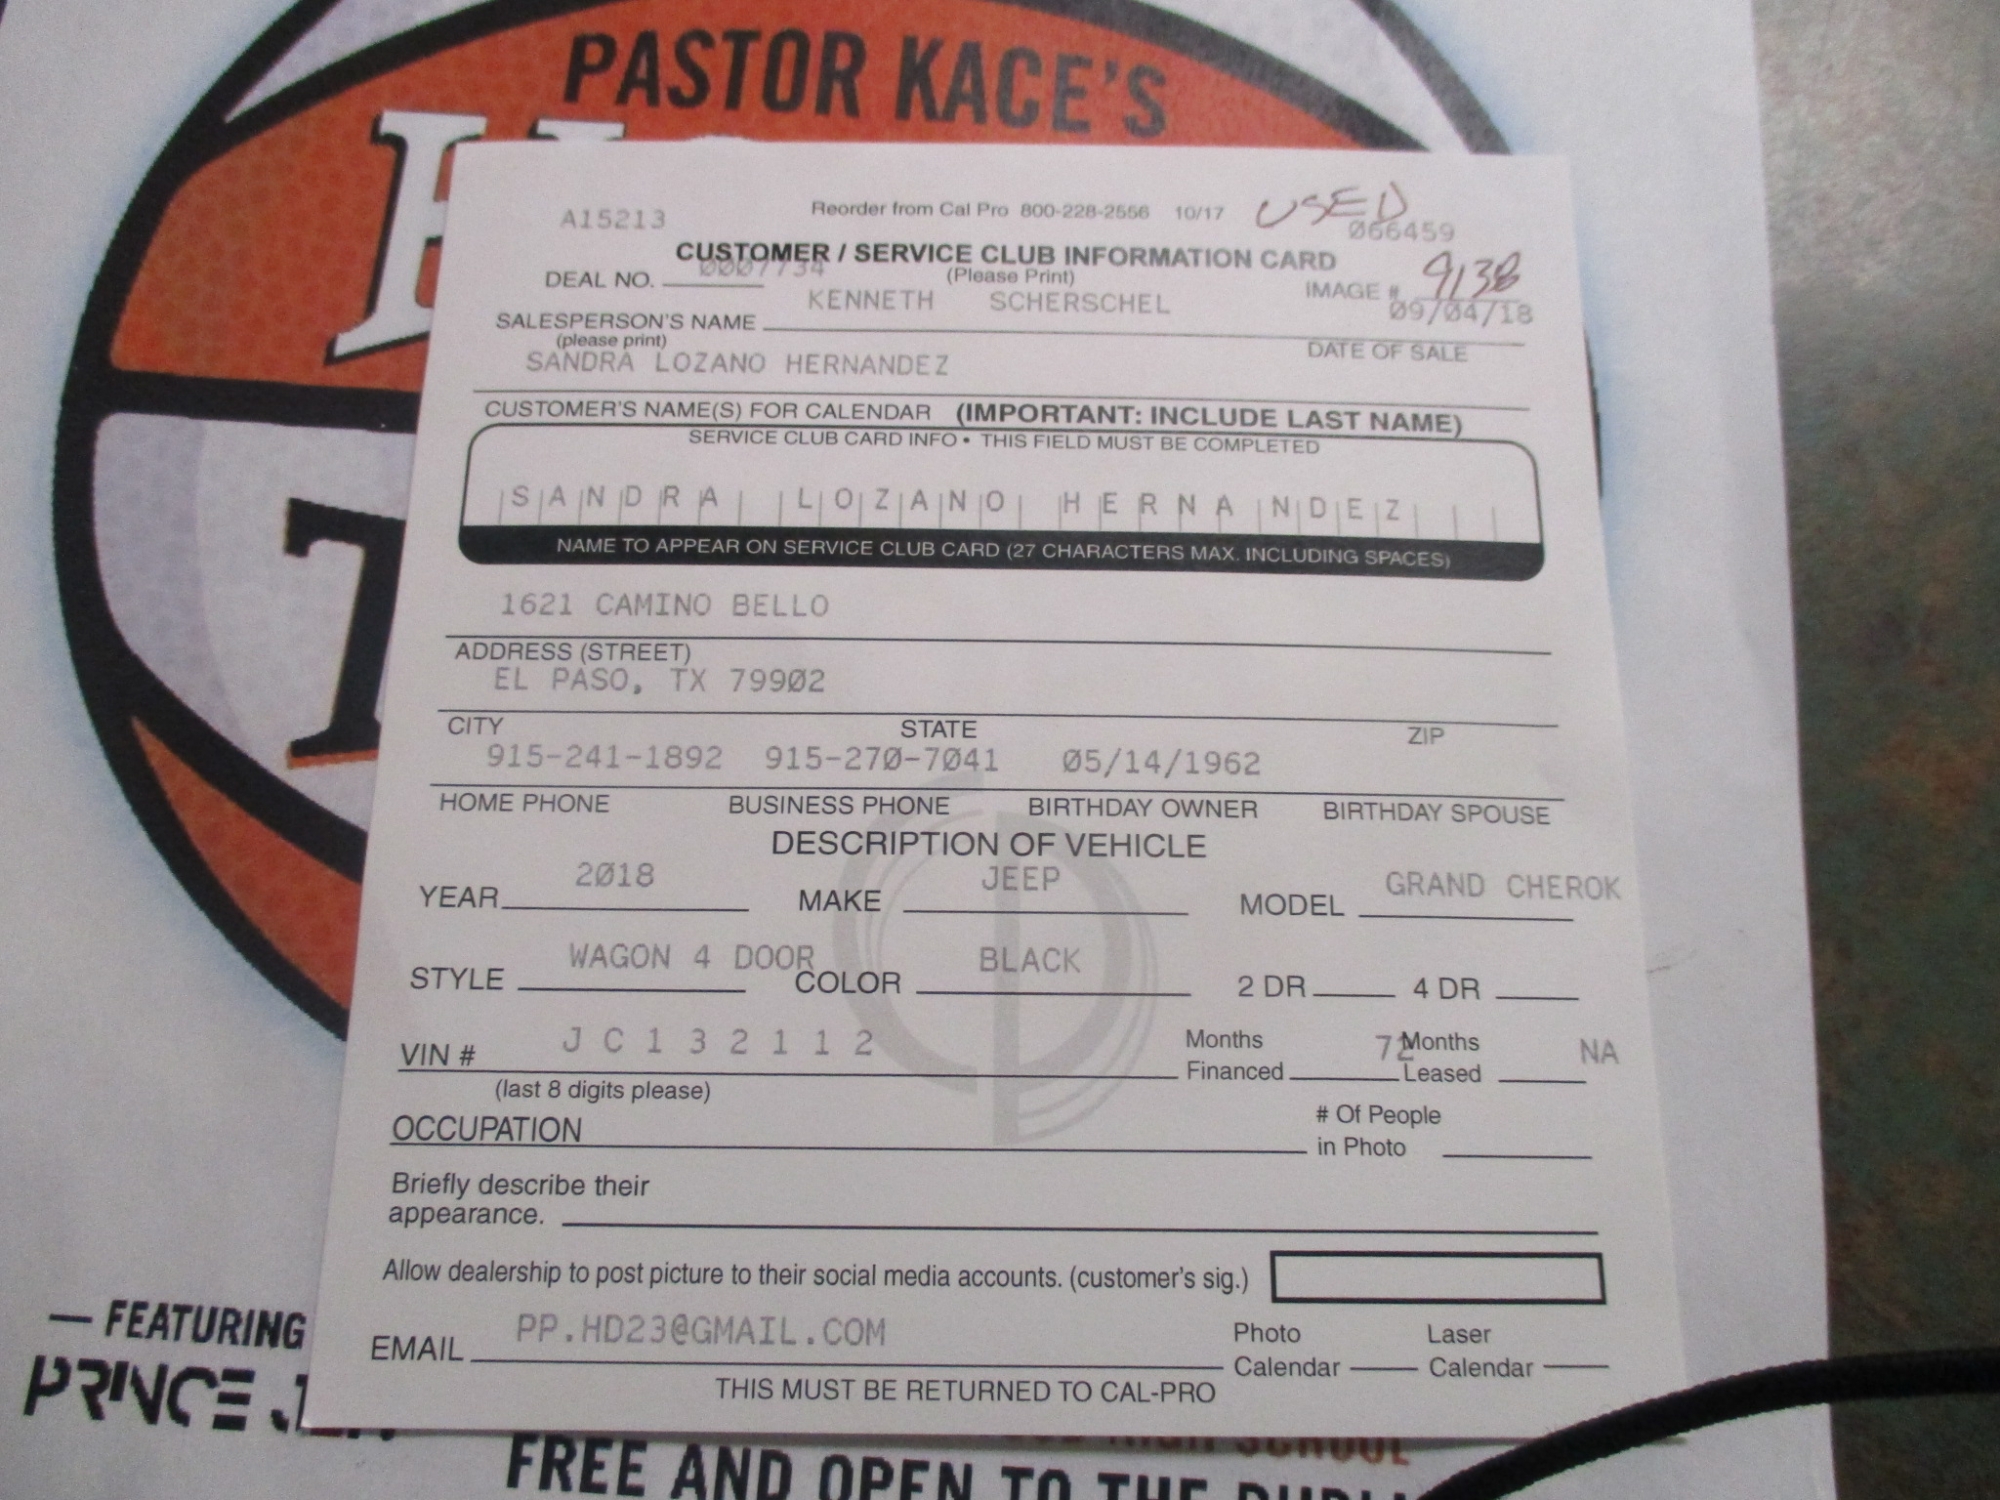 PASTOR KACE'S
A15213
Reorder from Cal Pro 800-228-2556 10/17
USED
066459
CUSTOMER / SERVICE CLUB INFORMATION CARD
DEAL NO. 0007734
(Please Print)
IMAGE # 9138
KENNETH SCHERSCHEL
09/04/18
SALESPERSON'S NAME
(please print)
DATE OF SALE
SANDRA LOZANO HERNANDEZ
CUSTOMER'S NAME(S) FOR CALENDAR (IMPORTANT: INCLUDE LAST NAME)
SERVICE CLUB CARD INFO • THIS FIELD MUST BE COMPLETED
SANDRA LOZANO HERNANDEZ
NAME TO APPEAR ON SERVICE CLUB CARD (27 CHARACTERS MAX. INCLUDING SPACES)
1621 CAMINO BELLO
ADDRESS (STREET)
EL PASO, TX 79902
CITY STATE ZIP
915-241-1892 915-270-7041 05/14/1962
HOME PHONE BUSINESS PHONE BIRTHDAY OWNER BIRTHDAY SPOUSE
DESCRIPTION OF VEHICLE
YEAR 2018 MAKE JEEP MODEL GRAND CHEROK
STYLE WAGON 4 DOOR COLOR BLACK 2 DR 4 DR
VIN # J C 1 3 2 1 1 2
(last 8 digits please)
Months Financed 72 Months Leased NA
OCCUPATION
# Of People in Photo
Briefly describe their
appearance.
Allow dealership to post picture to their social media accounts. (customer's sig.)
EMAIL PP.HD23@GMAIL.COM
Photo Calendar Laser Calendar
THIS MUST BE RETURNED TO CAL-PRO
— FEATURING
PRINCE
HIGH SCHOOL
FREE AND OPEN TO THE